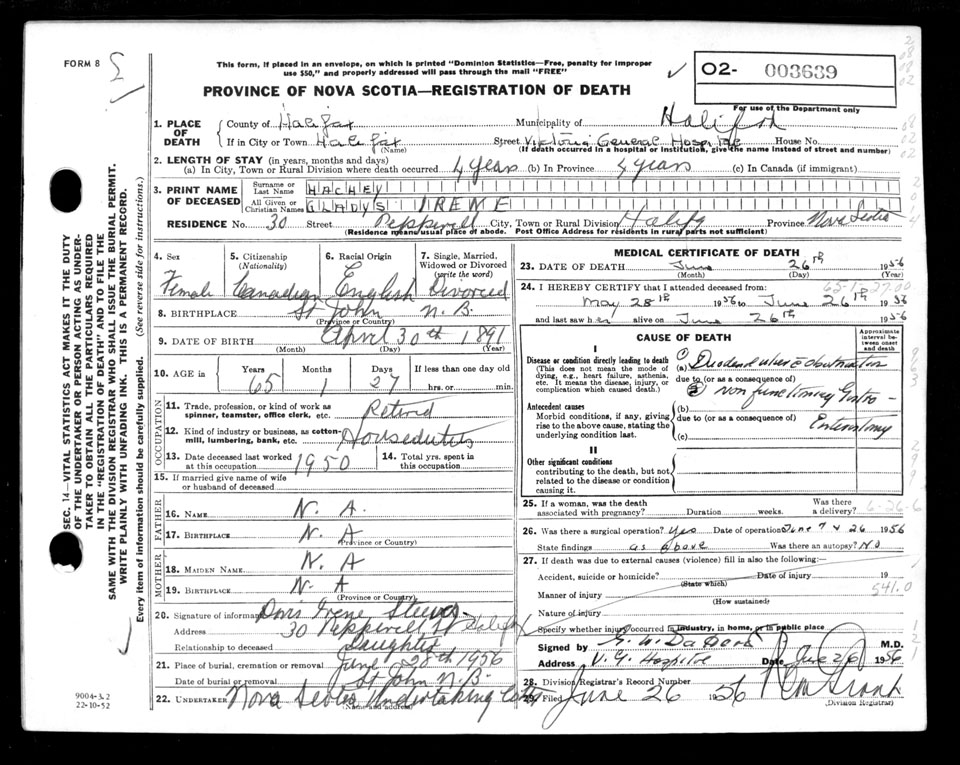 FORM 8
This form, if placed in an envelope, on which is printed "Dominion Statistics—Free, penalty for improper
use $50," and properly addressed will pass through the mail "FREE"
02- 003639
For use of the Department only
PROVINCE OF NOVA SCOTIA—REGISTRATION OF DEATH
1. PLACE OF DEATH
County of Halifax Municipality of Halifax
If in City or Town Halifax (Name) Street Victoria General Hospital House No.
(If death occurred in a hospital or institution, give the name instead of street and number)
2. LENGTH OF STAY (in years, months and days)
(a) In City, Town or Rural Division where death occurred 4 years (b) In Province 4 years (c) In Canada (if immigrant)
3. PRINT NAME OF DECEASED
Surname or Last Name HACHEY
All Given or Christian Names GLADYS IRENE
RESIDENCE No. 30 Street Pepperell City, Town or Rural Division Halifax Province Nova Scotia
(Residence means usual place of abode. Post Office Address for residents in rural parts not sufficient)
4. Sex Female
5. Citizenship (Nationality) Canadian
6. Racial Origin English
7. Single, Married, Widowed or Divorced (write the word) Divorced
8. BIRTHPLACE St John N.B.
(Province or Country)
9. DATE OF BIRTH April 30th 1891
(Month) (Day) (Year)
10. AGE in Years 65 Months 1 Days 27 If less than one day hrs. or min.
OCCUPATION
11. Trade, profession, or kind of work as spinner, teamster, office clerk, etc. Retired
12. Kind of industry or business, as cotton-mill, lumbering, bank, etc. Houseduties
13. Date deceased last worked at this occupation 1950
14. Total yrs. spent in this occupation
15. If married give name of wife or husband of deceased
FATHER
16. NAME N. A.
17. BIRTHPLACE N. A
(Province or Country)
MOTHER
18. MAIDEN NAME N. A
19. BIRTHPLACE N- A
(Province or Country)
20. Signature of informant Doris Irene Steeves
Address 30 Pepperell St Halifax
Relationship to deceased Daughter
21. Place of burial, cremation or removal June 28th 1956
Date of burial or removal St John N.B.
22. UNDERTAKER Nova Scotia Undertaking Co
(Name and address)
MEDICAL CERTIFICATE OF DEATH
23. DATE OF DEATH June 26th 1956
(Month) (Day) (Year)
24. I HEREBY CERTIFY that I attended deceased from:
May 28th 1956 to June 26th 1956
and last saw her alive on June 26th 1956
CAUSE OF DEATH
Approximate interval between onset and death
I
Disease or condition directly leading to death
(This does not mean the mode of dying, e.g., heart failure, asthenia, etc. It means the disease, injury, or complication which caused death.)
(a) Duodenal ulcer c obstruction
due to (or as a consequence of)
non functioning Gastro-
Enterostomy
Antecedent causes
Morbid conditions, if any, giving rise to the above cause, stating the underlying condition last.
(b)
due to (or as a consequence of)
(c)
II
Other significant conditions
contributing to the death, but not related to the disease or condition causing it.
25. If a woman, was the death associated with pregnancy? Duration weeks. Was there a delivery? 6-26-6
26. Was there a surgical operation? Yes Date of operation June 7 & 26 1956
State findings as above Was there an autopsy? No
27. If death was due to external causes (violence) fill in also the following:
Accident, suicide or homicide? (State which) Date of injury 19
Manner of injury 541.0
(How sustained)
Nature of injury
Specify whether injury occurred in industry, in home, or in public place
Signed by M.D.
Address V. G. Hospital Date June 26 1956
28. Division Registrar's Record Number
29. Filed June 26 1956
(Division Registrar)
SEC. 14—VITAL STATISTICS ACT MAKES IT THE DUTY
OF THE UNDERTAKER OR PERSON ACTING AS UNDER-
TAKER TO OBTAIN ALL THE PARTICULARS REQUIRED
IN THE "REGISTRATION OF DEATH" AND TO FILE THE
SAME WITH THE DIVISION REGISTRAR WHO SHALL ISSUE THE BURIAL PERMIT.
WRITE PLAINLY WITH UNFADING INK. THIS IS A PERMANENT RECORD.
Every item of information should be carefully supplied. (See reverse side for instructions.)
9004-3.2
22-10-52